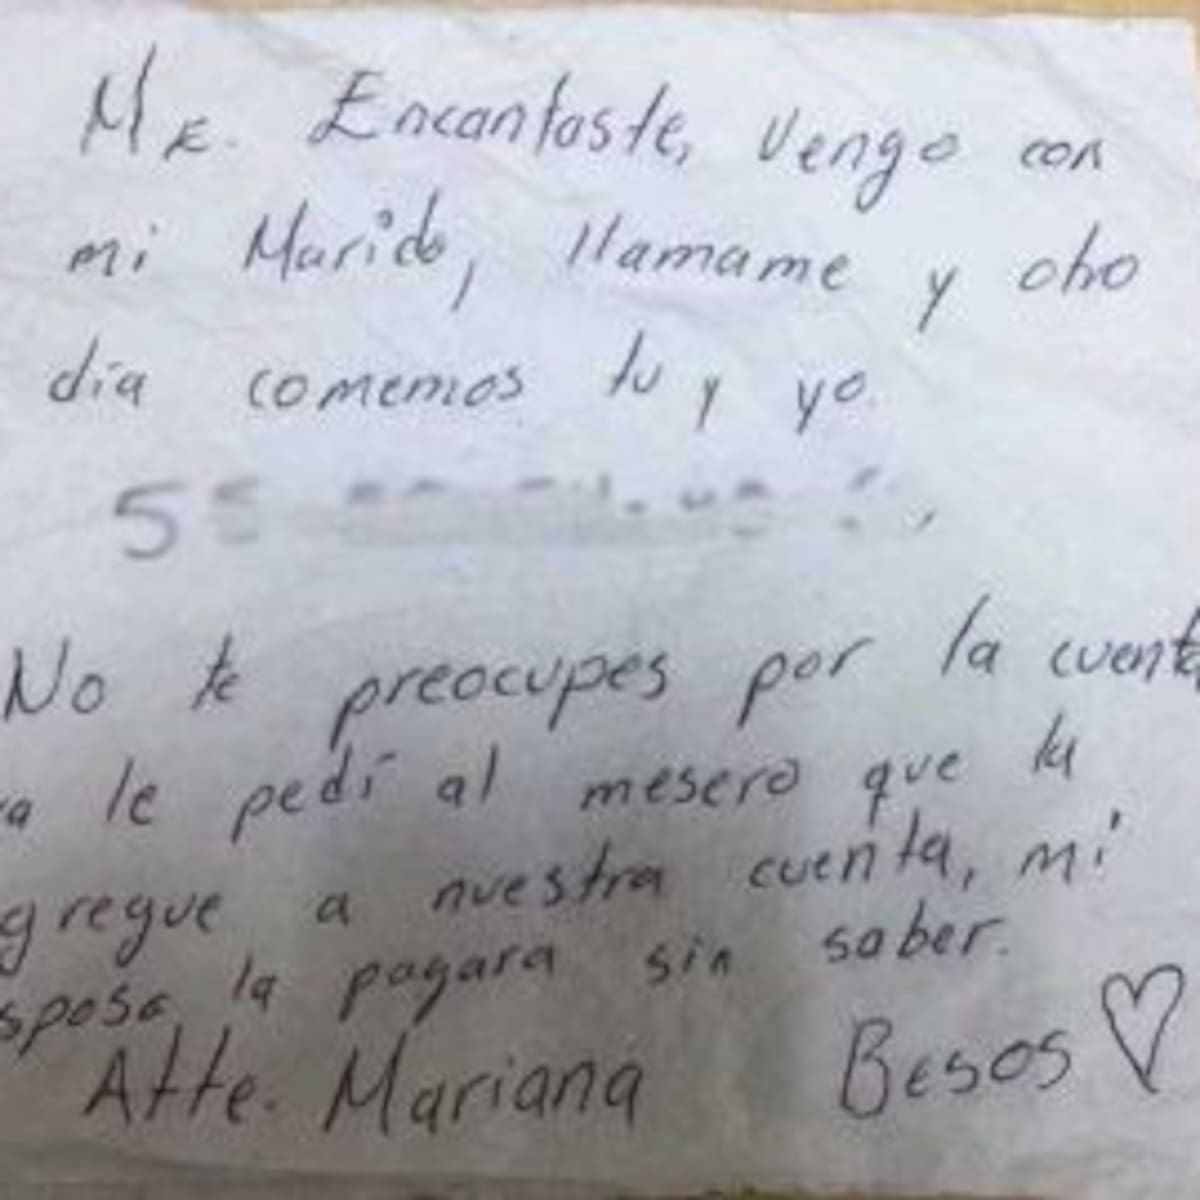 Me. Encantaste, Vengo con
mi Marido, llamame y otro
día comemos tu y yo.
55
No te preocupes por la cuenta
ya le pedí al mesero que la
gregue a nuestra cuenta, mi
sposo la pagara sin saber.
Atte. Mariana Besos ♡